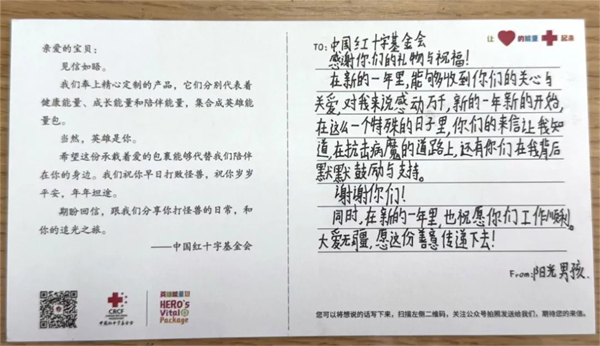 亲爱的宝贝：
见信如晤。
我们奉上精心定制的产品，它们分别代表着
健康能量、成长能量和陪伴能量，集合成英雄能
量包。
当然，英雄是你。
希望这份承载着爱的包裹能够代替我们陪伴
在你的身边。我们祝你早日打败怪兽，祝你岁岁
平安，年年坦途。
期盼回信，跟我们分享你打怪兽的日常，和
你的追光之旅。
——中国红十字基金会
CRCF
中国红十字基金会
英雄能量包
HERO's
Vital
Package
让 的能量 起来
TO: 中国红十字基金会
感谢你们的礼物与祝福！
在新的一年里，能够收到你们的关心与
关爱，对我来说感动万千，新的一年新的开始，
在这么一个特殊的日子里，你们的来信让我知
道，在抗击病魔的道路上，还有你们在我背后
默默鼓励与支持。
谢谢你们！
同时，在新的一年里，也祝愿你们工作顺利。
大爱无疆，愿这份善意传递下去！
From: 阳光男孩
您可以将想说的话写下来，扫描左侧二维码，关注公众号拍照发送给我们，期待您的来信。